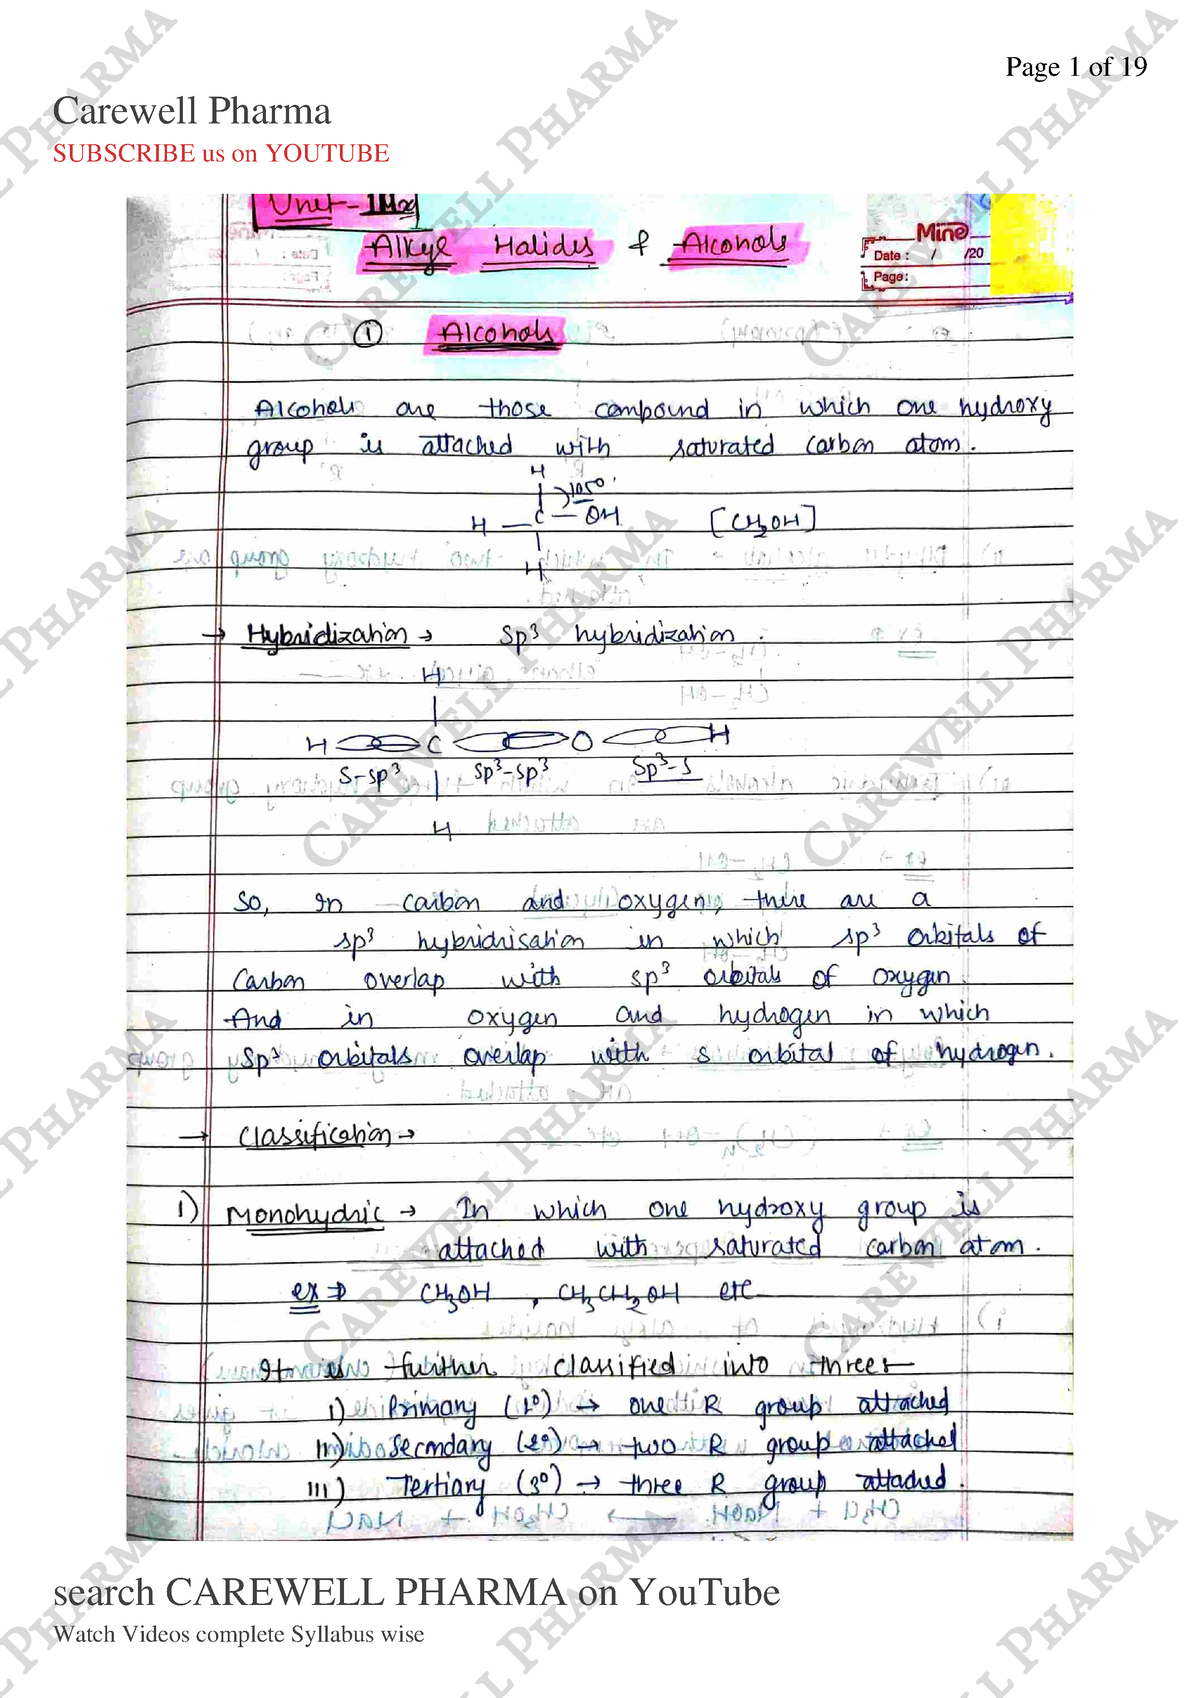 Page 1 of 19
Carewell Pharma
SUBSCRIBE us on YOUTUBE
Unit-III
Alkyl Halides & Alcohols
Mine
Date : / /20
Page:
① Alcohols
Alcohols are those compound in which one hydroxy
group is attached with saturated carbon atom.
H
105°
H — C — OH [CH3OH]
H
→ Hybridization → Sp³ hybridization.
H
H C O H
S-sp³ Sp³-Sp³ Sp³-S
H
So, In carbon and oxygen, there are a
sp³ hybridrisation in which sp³ orbitals of
Carbon overlap with sp³ orbitals of oxygen.
And in oxygen and hydrogen in which
Sp³ orbitals overlap with s orbital of hydrogen.
→ Classification →
i) Monohydric → In which one hydroxy group is
attached with saturated carbon atom.
ex ⇒ CH3OH , CH3CH2OH etc
It is further classified into three→
i) Primary (1°) → one R group attached
ii) Secondary (2°) → two R group attached
iii) Tertiary (3°) → three R group attached.
search CAREWELL PHARMA on YouTube
Watch Videos complete Syllabus wise
CAREWELL PHARMA